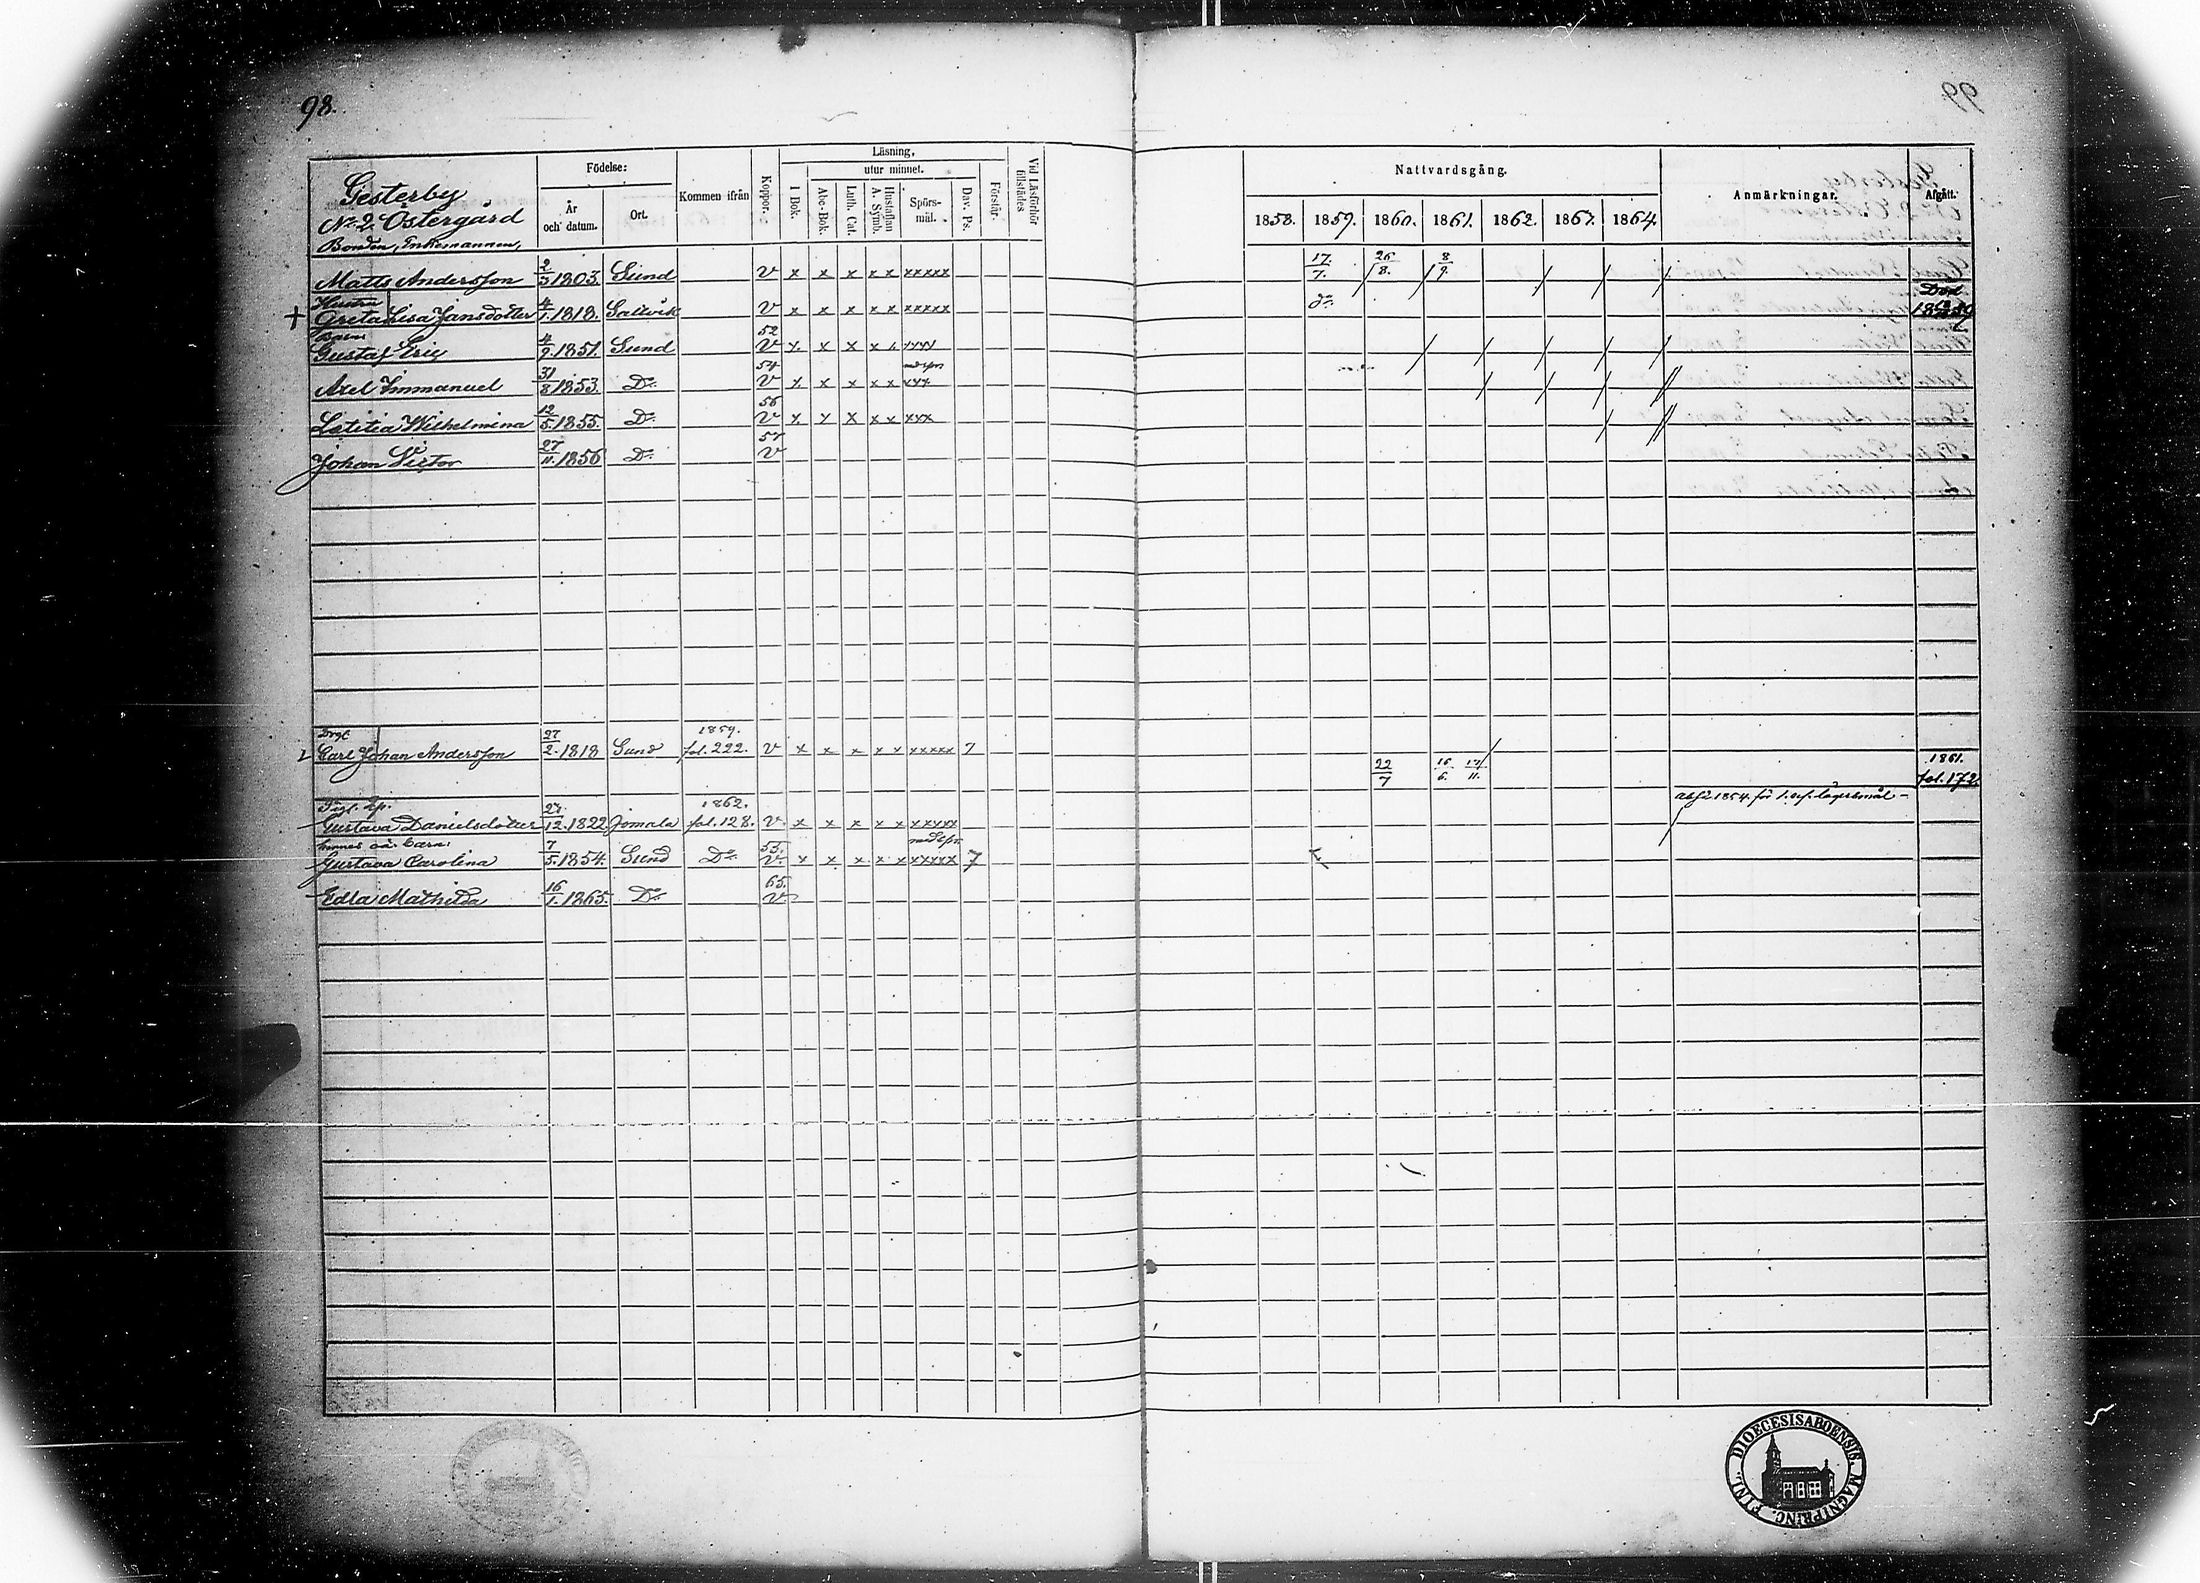 98.
99
Gesterby
No 2. Östergård
Bonden, Enkemannen,
Födelse:
År och datum.
Ort.
Kommen ifrån
Koppor.
Läsning,
utur minnet.
I Bok.
Abc-Bok.
Luth. Cat.
Hustaflan A. Symb.
Spörs-mål.
Dav. Ps.
Förstår.
Vid Läsförhör tillstädes
Nattvardsgång.
1858. 1859. 1860. 1861. 1862. 1863. 1864.
Anmärkningar.
Afgått.
Matts Andersson 2/3 1803. Sund v x x x x x xxxxx 17/7. 26/8. 8/9.
Hustru
+ Greta Lisa Jansdotter 4/1. 1818. Saltvik v x x x x x xxxxx do. Död
Gustaf Eric 4/9. 1851. Sund 52 v x x x x xxxx
Axel Immanuel 31/8 1853. Do. 54 v x x x x x xxx
Lætitia Wilhelmina 12/5. 1855. Do. 56 v x x x x x xxx
Johan Victor 27/11. 1856 Do. 57 v
Carl Johan Andersson 27/2. 1818 Sund 1859. fol. 222. v x x x x x xxxxx 7 22/7 16/6. 17/11. 1861. fol. 172
Gustava Danielsdotter 27/12. 1822 Jomala 1862. fol. 128. v x x x x x xxxxx 1854. för 1. lägersmål
hennes oä. barn:
Gustava Carolina 7/5. 1854. Sund Do. 55. v. x x x x x xxxxx 7
Edla Mathilda 16/1. 1865. Do. 65. v
FINL. DIOECESIS ABOENSIS. MAGNI PRINC.